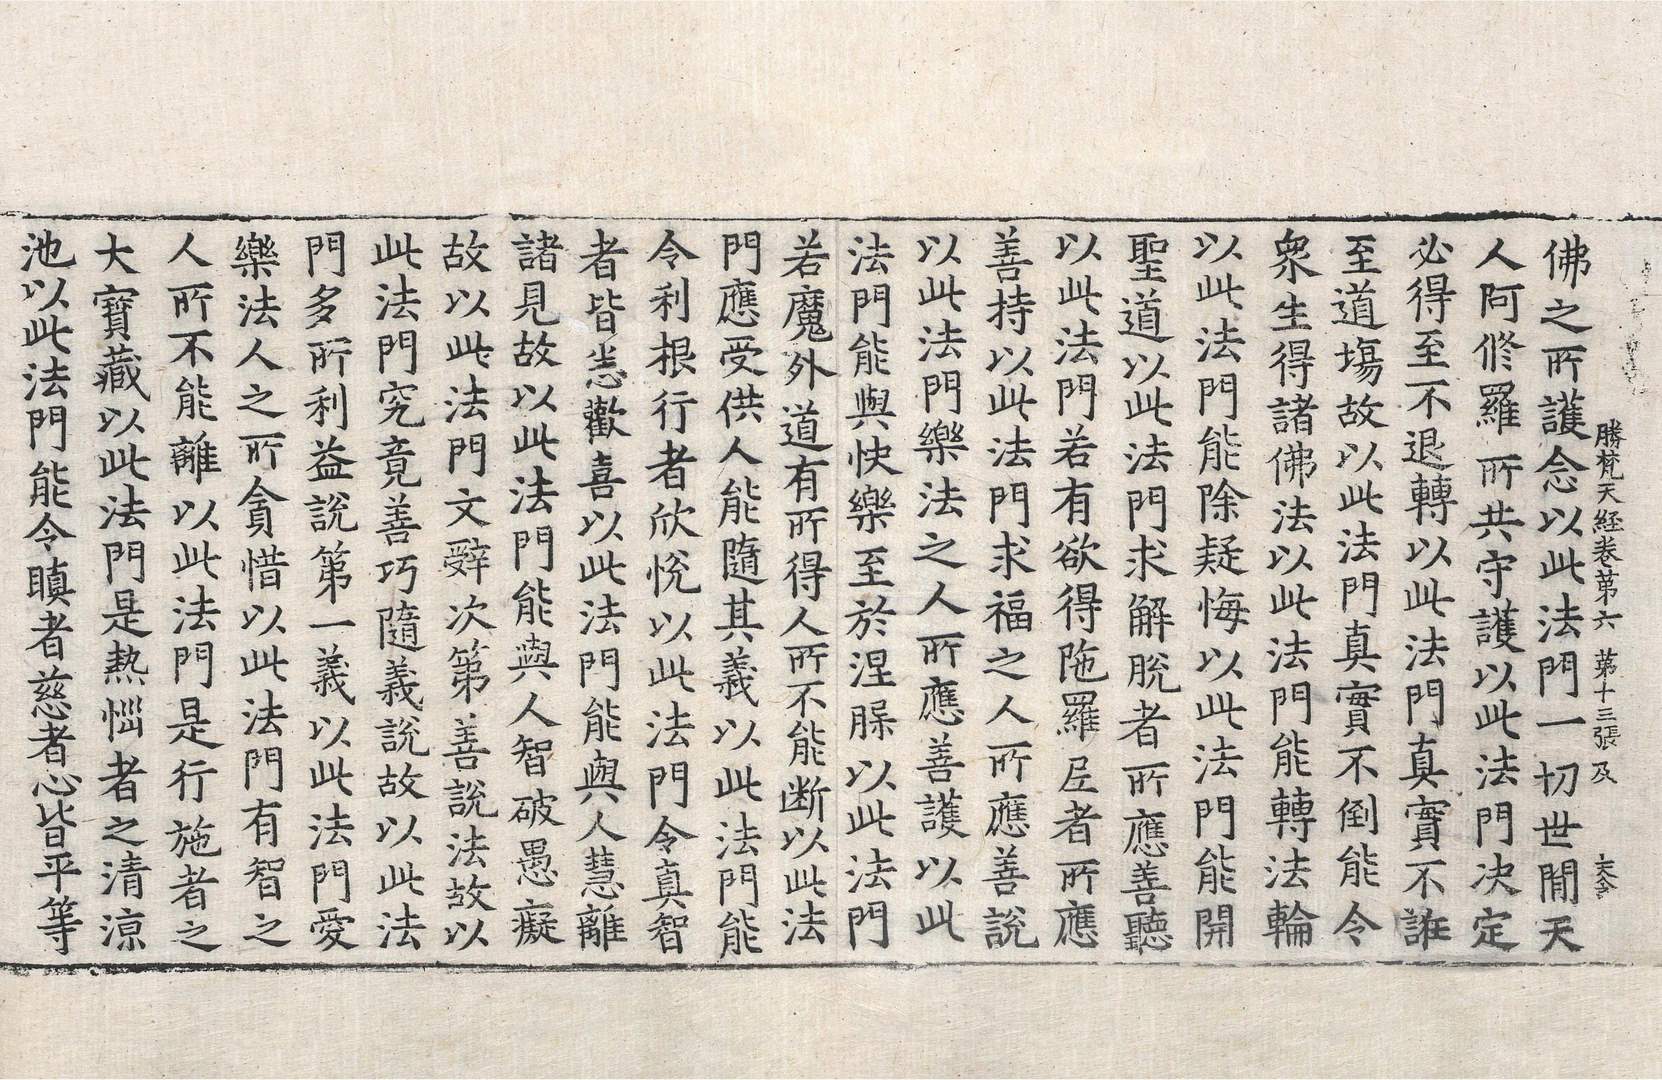 勝梵天経卷第六 第十三張 及
佛之所護念以此法門一切世間天
人阿修羅所共守護以此法門决定
必得至不退轉以此法門真實不誑
至道塲故以此法門真實不倒能令
衆生得諸佛法以此法門能轉法輪
以此法門能除疑悔以此法門能開
聖道以此法門求解脫者所應善聽
以此法門若有欲得陁羅尼者所應
善持以此法門求福之人所應善說
以此法門樂法之人所應善護以此
法門能與快樂至於涅槃以此法門
若魔外道有所得人所不能断以此法
門應受供人能隨其義以此法門能
令利根行者欣悅以此法門令真智
者皆悉歡喜以此法門能與人慧離
諸見故以此法門能與人智破愚癡
故以此法門文辭次第善說法故以
此法門究竟善巧隨義說故以此法
門多所利益說第一義以此法門愛
樂法人之所貪惜以此法門有智之
人所不能離以此法門是行施者之
大寶藏以此法門是熱惱者之清涼
池以此法門能令瞋者慈者心皆平等